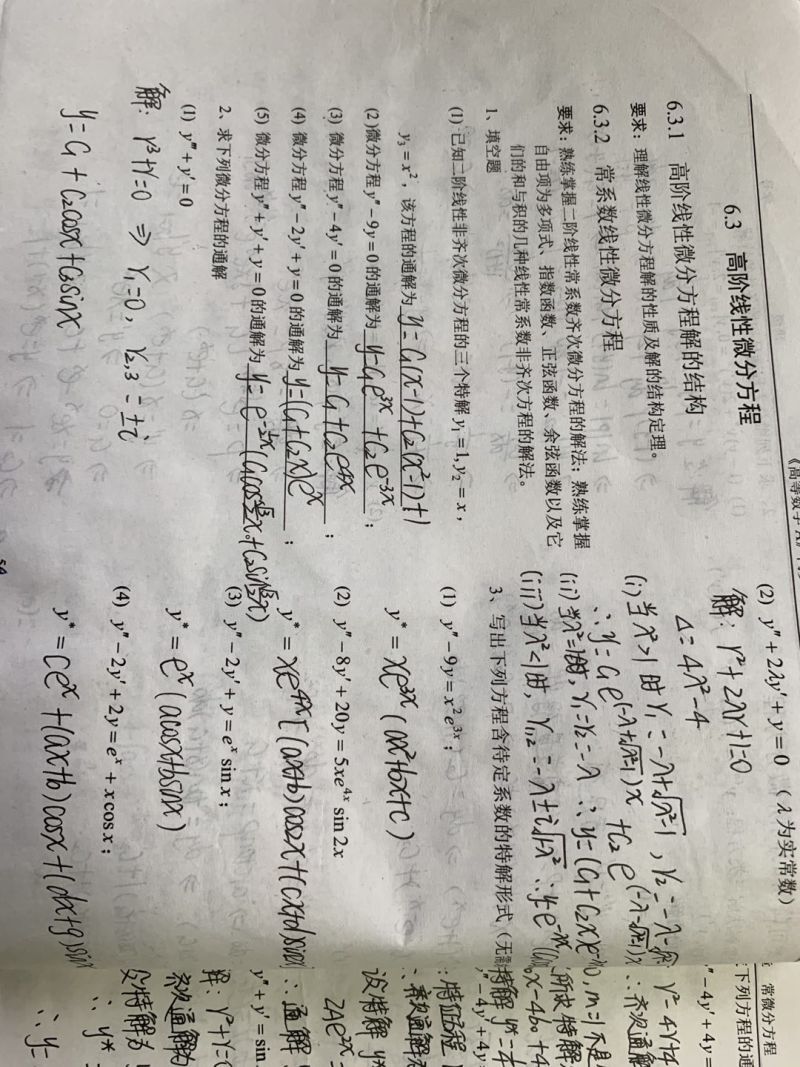 《高等数学
6.3 高阶线性微分方程
6.3.1 高阶线性微分方程解的结构
要求：理解线性微分方程解的性质及解的结构定理。
6.3.2 常系数线性微分方程
要求：熟练掌握二阶线性常系数齐次微分方程的解法；熟练掌握
自由项为多项式、指数函数、正弦函数、余弦函数以及它
们的和与积的几种线性常系数非齐次方程的解法。
1、填空题
(1) 已知二阶线性非齐次微分方程的三个特解 y₁ = 1, y₂ = x，
y₃ = x²，该方程的通解为 y=C₁(x-1)+C₂(x²-1)+1
(2)微分方程 y″ − 9y = 0 的通解为 y=C₁e^{3x}+C₂e^{-3x}；
(3) 微分方程 y″ − 4y′ = 0 的通解为 y=C₁+C₂e^{4x}；
(4) 微分方程 y″ − 2y′ + y = 0 的通解为 y=(C₁+C₂x)e^x；
(5) 微分方程 y″ + y′ + y = 0 的通解为 y=e^{-½x}(C₁cos(√3/2)x+C₂sin(√3/2)x)
2、求下列微分方程的通解
(1) y‴ + y′ = 0
解：r³+r=0 ⇒ r₁=0，r₂,₃=±i
y=C₁+C₂cosx+C₃sinx
(2) y″ + 2λy′ + y = 0 （λ为实常数）
解：r²+2λr+1=0
Δ=4λ²-4
(i)当λ²>1时 r₁=-λ+√(λ²-1)，r₂=-λ-√(λ²-1)
∴y=C₁e^{(-λ+√(λ²-1))x}+C₂e^{(-λ-√(λ²-1))x}
(ii)当λ²=1时，r₁=r₂=-λ ∴y=(C₁+C₂x)e^{-λx}
(iii)当λ²<1时，r₁,₂=-λ±i√(1-λ²) ∴y=e^{-λx}
3、写出下列方程含待定系数的特解形式（无需
(1) y″ − 9y = x²e^{3x}；
y* = xe^{3x}(ax²+bx+c)
(2) y″ − 8y′ + 20y = 5xe^{4x} sin 2x
y* = xe^{4x}[(ax+b)cos2x+(cx+d)sin
(3) y″ − 2y′ + y = e^x sin x；
y* = e^x(acosx+bsinx)
(4) y″ − 2y′ + 2y = e^x + x cos x；
y* = Ce^x+(ax+b)cosx+(dx+g)sin
54
常微分方程
下列方程的通
″ − 4y′ + 4y =
r²-4r+4
∴齐次通解
，m=1不是
所求特解
-4a₀x-4b₀+4
特解 y*=-4
″ − 4y′ + 4y =
：特征方程
∴齐次通解为
设特解 y*
2Ae^{2x}=
∴通解
y″ + y′ = sin
解：r²+r=0
齐次通解为
设特解为
∴ y*
∴y=